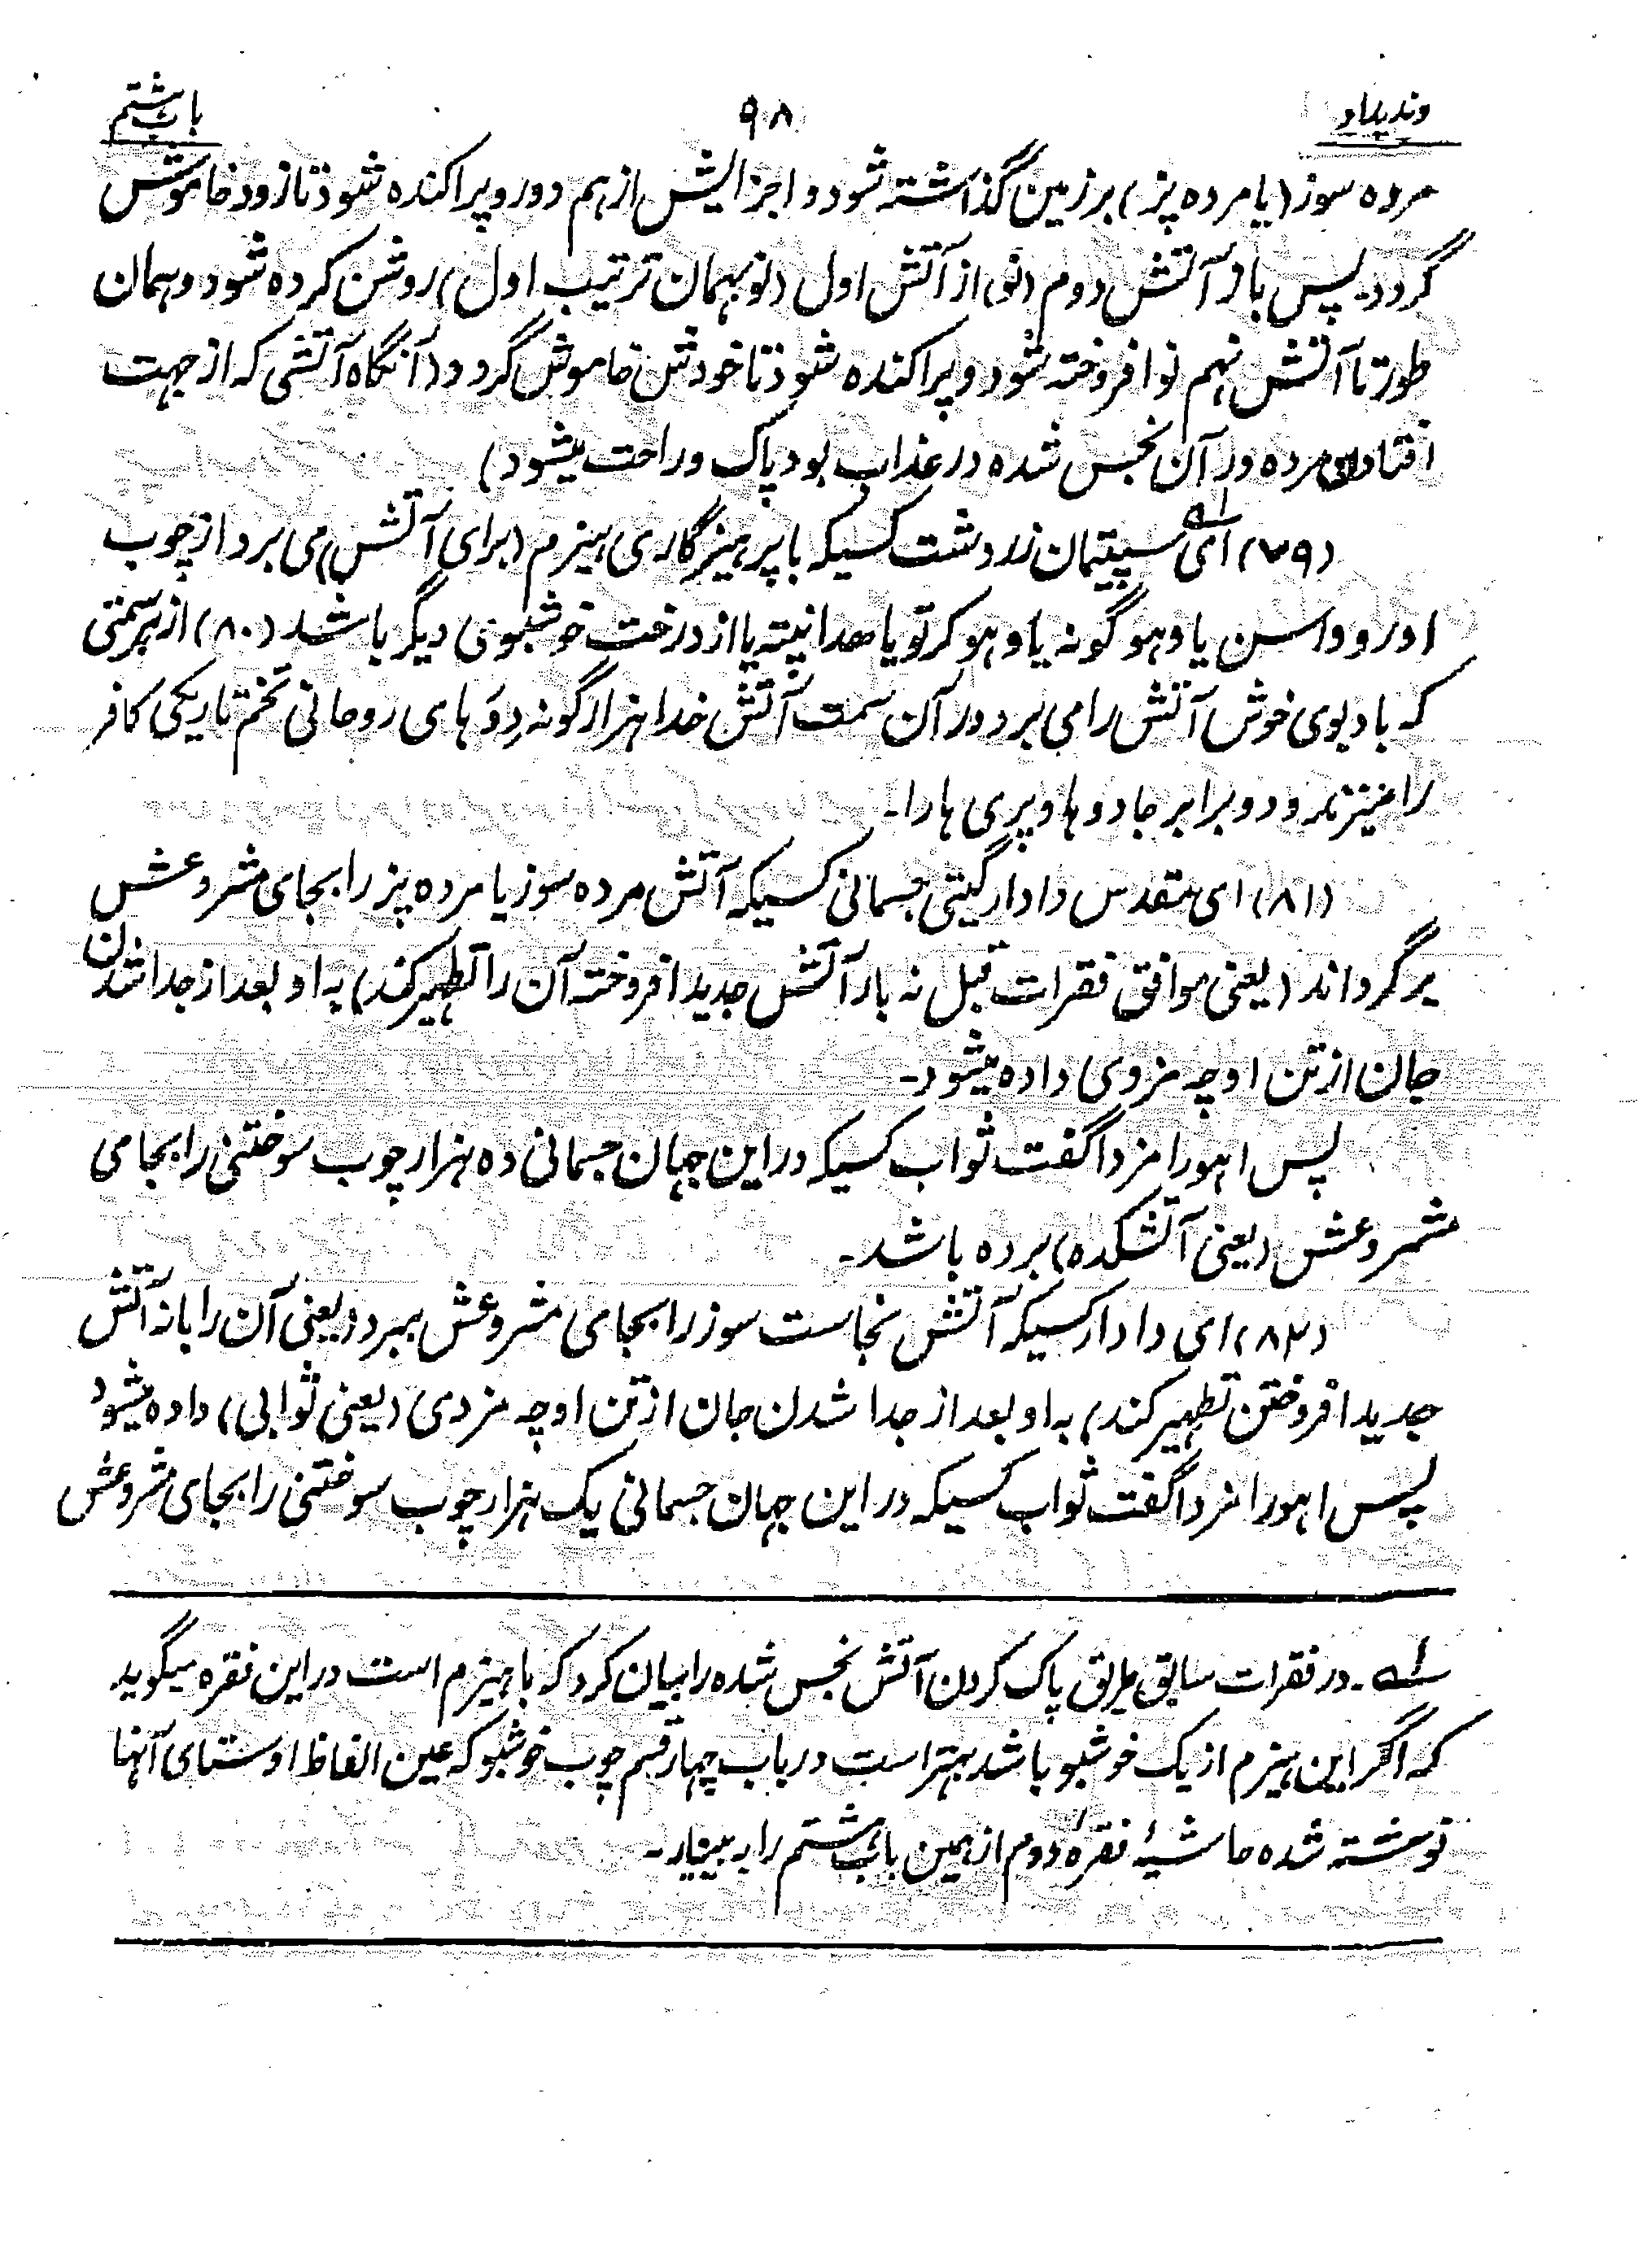 وندیداد ۹۸ باب هشتم
مرده سوز (یا مرده پز) بر زمین گذاشته شود و اجزایش از هم دور و پراکنده شود تا زود خاموش
گردد۔ پس باز آتش دوم (نو) از آتش اول (نو بهمان ترتیب اول) روشن کرده شود و همان
طور تا آتش نهم نو افروخته شود و پراکنده شود تا خودش خاموش گردد (آنگاه آتشی که از جهت
افتادن مرده در آن نجس شده در عذاب بود پاک و راحت میشود)
(۷۹) ای سپیتمان زردشت کسیکه با پرهیزگاری هیزم (برای آتش) می برد از چوب
اورو واسن یا وهو گونه یا وهو کرتو یا هدانپته یا از درخت خوشبوی دیگر باشد (۸۰) از هر سمتی
که باد بوی خوش آتش را می برد در آن سمت آتش خدا هزار گونه دِوَهای روحانی تخم تاریکی کافر
را میزند و دو برابر جادوها و پری ها را۔
(۸۱) ای مقدس دادار گیتی جسمانی کسیکه آتش مرده سوز یا مرده پز را بجای مشروعش
برگرداند (یعنی موافق فقرات قبل نه بار آتش جدید افروخته آن را تطهیر کند) به او بعد از جدا شدن
جان از تن او چه مزدی داده میشود۔
پس اهورا مزدا گفت ثواب کسیکه در این جهان جسمانی ده هزار چوب سوختنی را بجای
مشروعش (یعنی آتشکده) برده باشد۔
(۸۲) ای دادار کسیکه آتش نجاست سوز را بجای مشروعش ببرد (یعنی آن را با نه آتش
جدید افروختن تطهیر کند) به او بعد از جدا شدن جان از تن او چه مزدی (یعنی ثوابی) داده میشود
پس اهورا مزدا گفت ثواب کسیکه در این جهان جسمانی یک هزار چوب سوختنی را بجای مشروعش
له ۔ در فقرات سابق طریق پاک کردن آتش نجس شده را بیان کرد که با هیزم است در این فقره میگوید
که اگر این هیزم از یک خوشبو باشد بهتر است در باب چهار قسم چوب خوشبو که عین الفاظ اوستای آنها
نوشته شده حاشیهٔ فقرهٔ دوم از همین باب هشتم را به بینید۔